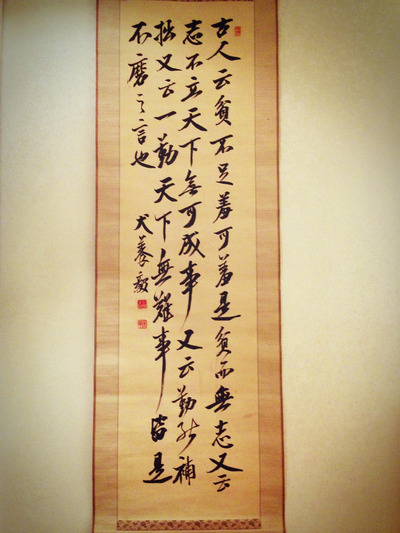 古人云貧不足羞可羞是貧而無志又云
志不立天下無可成事又云勤能補
拙又云一勤天下無難事皆是
不磨之言也
犬養毅